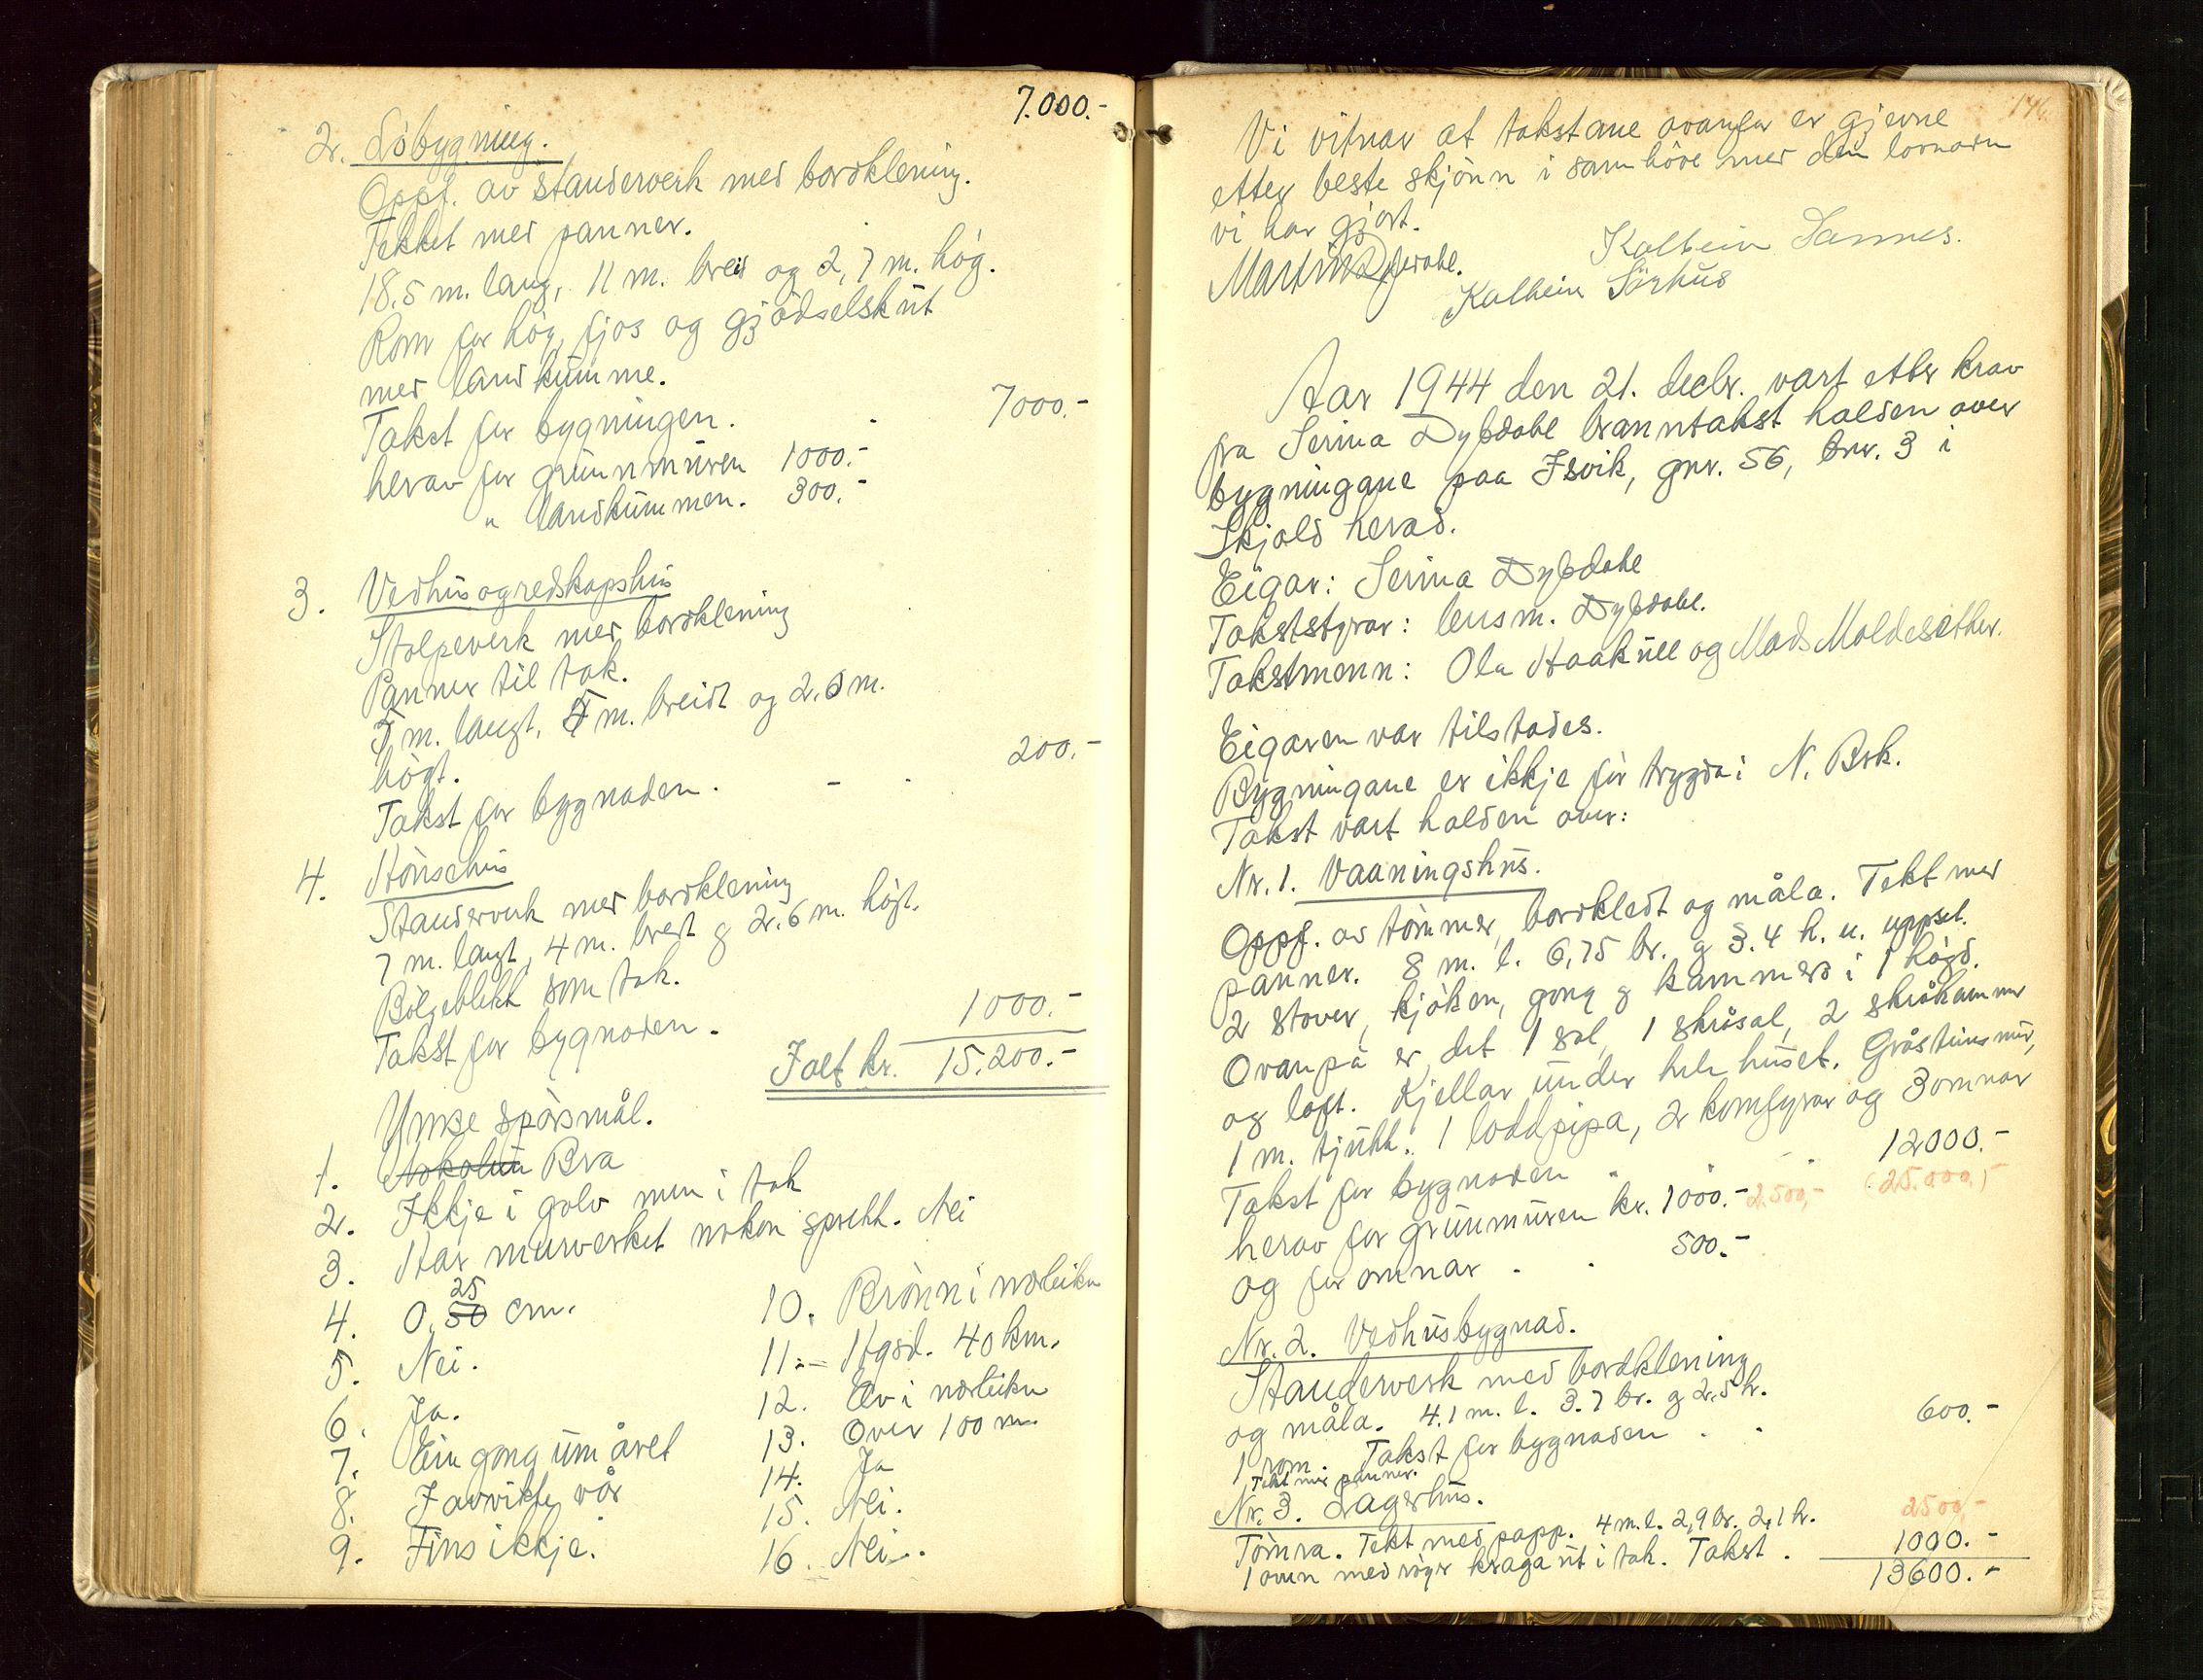 7.000.-
2. Löbygning.
Oppf. av standerverk med bordklening.
Tekket med panner.
18.5 m. lang, 11 m. breid og 2,7 m. høg.
Rom for høy, fjos og gjødselskut
med landkumme.
Takst for bygningen. 7000.-
herav for grunnmuren 1000.-
" landkummen. 300.-
3. Vedhus og redskapshus
Stolpeverk med bordklening
Panner til tak.
5 m. langt, 4 m. breidt og 2.0 m.
høgt.
Takst for bygnaden. - 200.-
4. Hönsehus
Standerverk med bordklening
7 m. langt, 4 m. bredt og 2.6 m. høgt.
Bölgeblekk som tak.
Takst for bygnaden. 1000.-
Ialt kr. 15.200.-
Ymse spörsmål.
1. Bra
2. Ikkje i golv men i tak
3. Har murverket nokon sprekk. Nei
4. 0.50 25 cm.
5. Nei.
6. Ja.
7. Ein gong um året
8. I avvikte vår
9. Fins ikkje.
10. Brönn i nærleiken
11. Hgsd. 40 km.
12. Elv i nærleiken
13. Over 100 m.
14. Ja
15. Nei.
16. Nei.
146.
Vi vitnar at takstane ovanfor er gjevne
etter beste skjönn i samhöve med den lovnadn
vi har gjort.
Martin Dybdahl. Kolbein Sannes.
Kolbein Sörhus
Aar 1944 den 21. decbr. vart etter krav
fra Serina Dybdahl branntakst halden over
bygningane paa Isvik, gnr. 56, bnr. 3 i
Skjold herad.
Eigar: Serina Dybdahl
Takststyrar: lensm. Dybdahl.
Takstmenn: Ola Haakull og Mads Moldesæther.
Eigaren var tilstades.
Bygningane er ikkje för trygda i N. Brk.
Takst vart halden over:
Nr. 1. Vaaningshus.
Oppf. av tömmer, bordkledt og måla. Tekt med
panner. 8 m. l. 6,75 br. og 3.4 h. u. uppset.
2 stover, kjöken, gong og kammers i 1 högd.
Ovanpå er det 1 sal, 1 skråsal, 2 skråkammer
og loft. Kjellar under hele huset. Gråsteinsmur,
1 m. tjukk. 1 loddpipa, 2 komfyrar og 3 omnar
Takst for bygnaden 12000.-
herav for grunnmuren kr. 1000.- 2.500,- (25.000.)-
og for omnar . . 500.-
Nr. 2. Vedhusbygnad.
Standerverk med bordklening
og måla. 4.1 m. l. 3.7 br. og 2.5 h.
1 rom. Takst for bygnaden . . 600.-
Tekt med panner.
Nr. 3. Lagerhus.
2500,-
Tömra. Tekt med papp. 4 m. l. 2,9 br. 2,1 h.
1 omn med röyr kraga ut i tak. Takst . 1000.-
13600.-